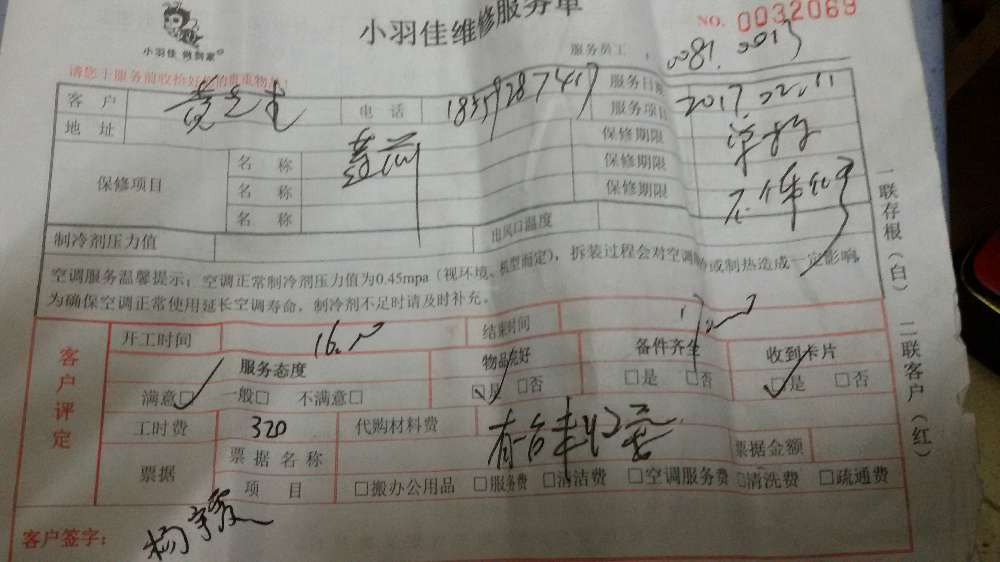 小羽佳维修服务单
NO. 0032069
小羽佳 做到家
服务员工: 0081.0013
请您于服务前收拾好您的贵重物品!
客户 黄先生 电话 服务日期 2017.02.11
地址 服务项目 单拆
保修项目 名称 保修期限
名称 保修期限
名称 保修期限
制冷剂压力值 出风口温度
空调服务温馨提示:空调正常制冷剂压力值为0.45mpa(视环境、机型而定),拆装过程会对空调制冷或制热造成一定影响,
为确保空调正常使用延长空调寿命,制冷剂不足时请及时补充。
一联存根(白) 二联客户(红)
客户评定
开工时间 16. 结束时间 17.
服务态度 物品完好 备件齐全 收到卡片
满意□ 一般□ 不满意□ □是 □否 □是 □否 □是 □否
工时费 320 代购材料费
票据 票据名称 票据金额
项目 □搬办公用品 □服务费 □清洁费 □空调服务费 □清洗费 □疏通费
客户签字: